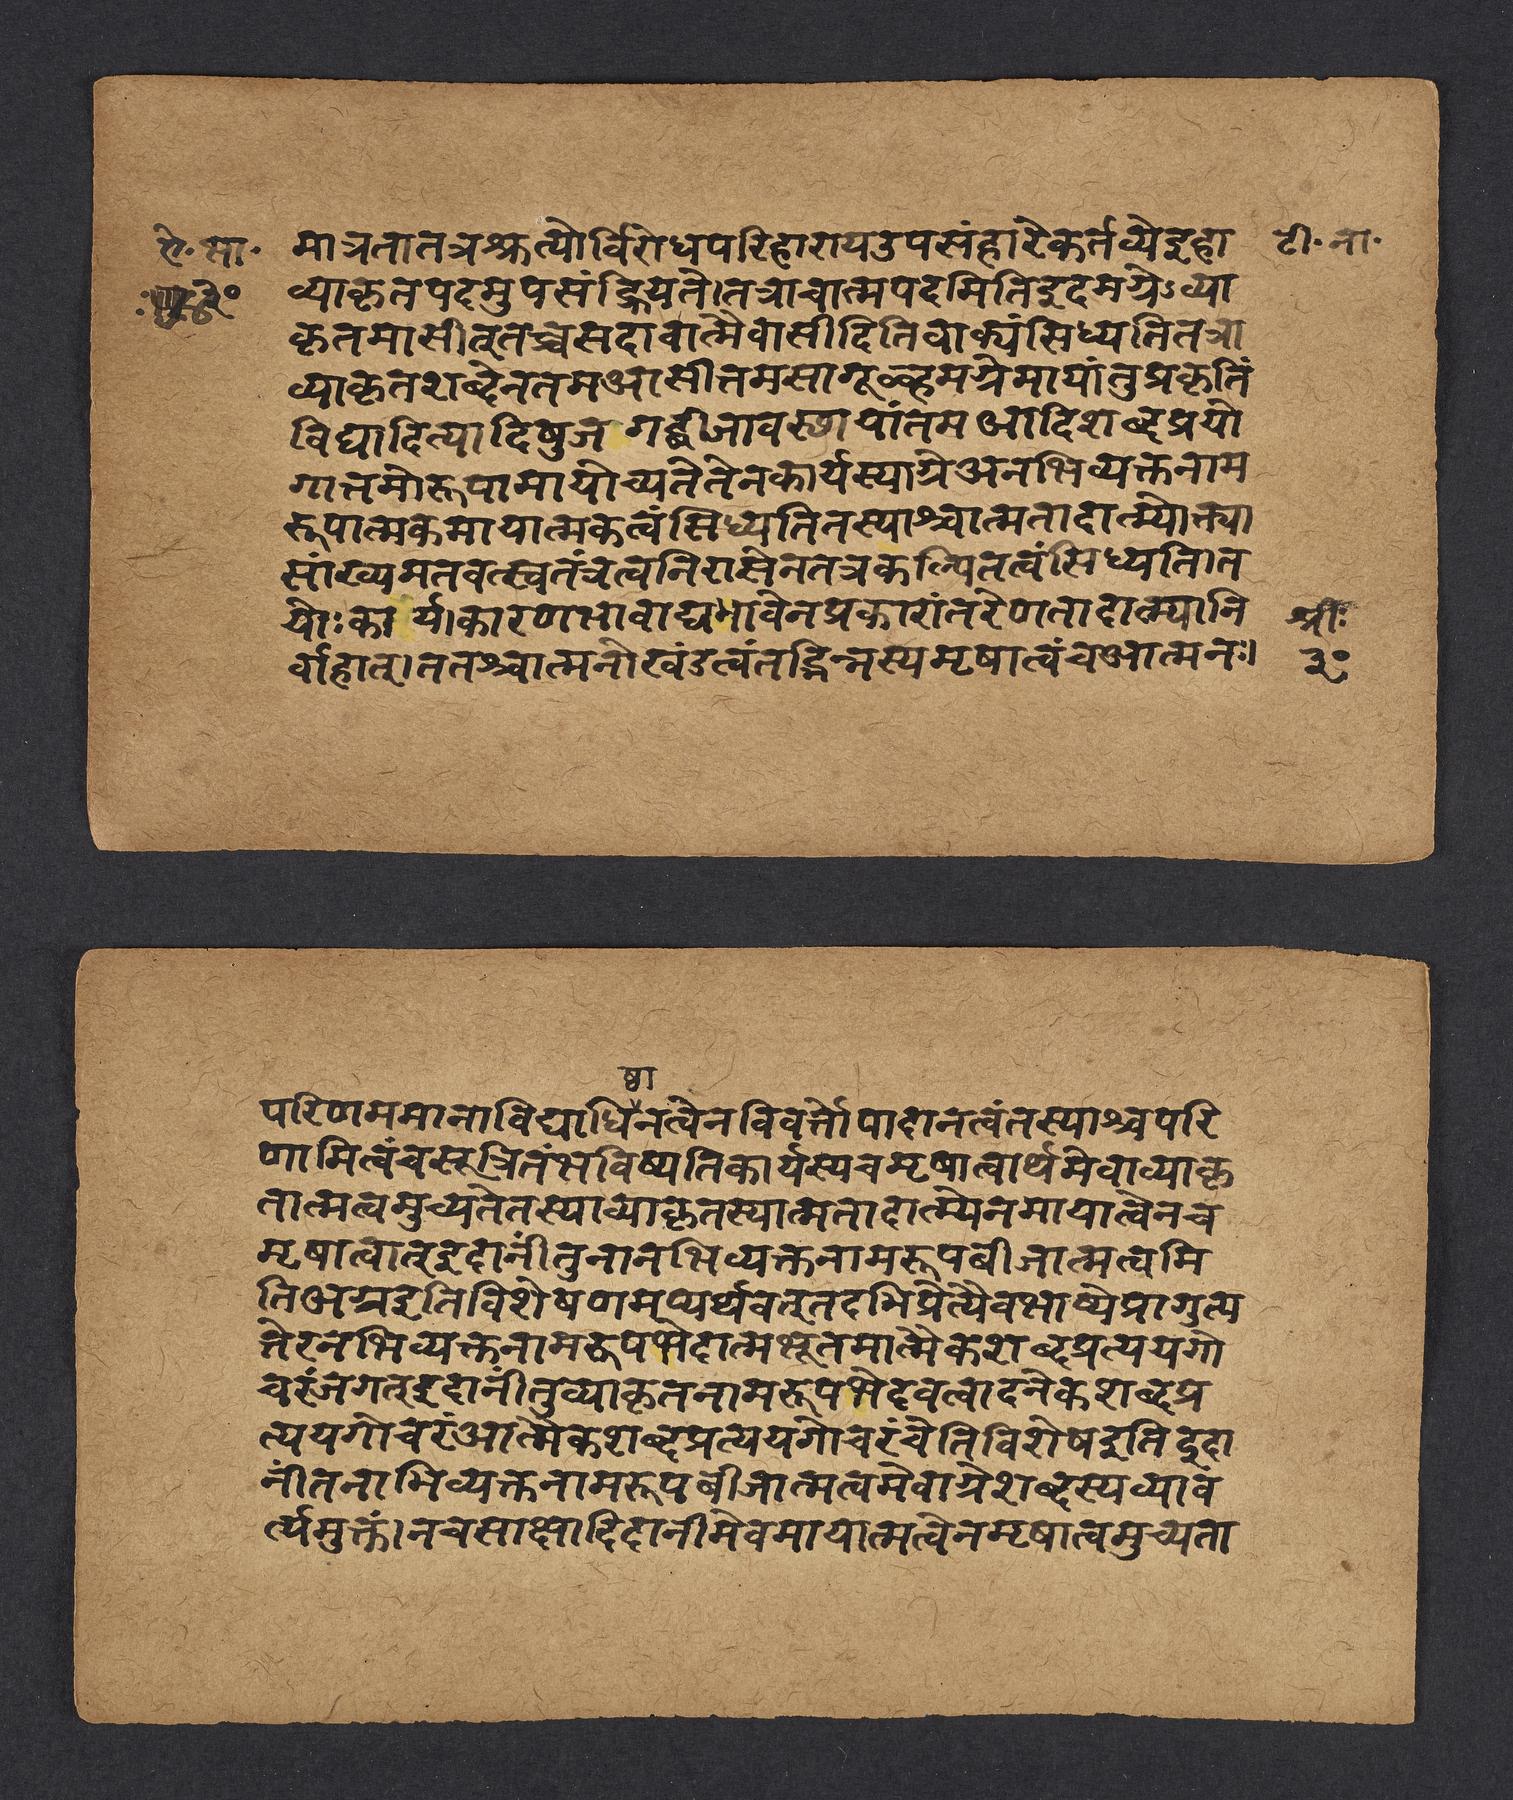 ऐ॰ भा॰
३०
मात्रतातत्रश्रुत्योर्विरोधपरिहारायउपसंहारेकर्तव्येइहा
टी॰ ना॰
व्याकृतपदमुपसंह्रियते।तत्राचात्मपदमितिइदमग्रेऽव्या
कृतमासीत्‌तच्चसदावात्मैवासीदितिवाक्यंसिध्यतितत्रा
व्याकृतशब्देनतमआसीत्तमसागूळ्हमग्रेमायांतुप्रकृतिं
विद्यादित्यादिषुजगद्बीजावस्थायांतमआदिशब्दप्रयो
गात्तमोरूपामायोच्यतेतेनकार्यस्याग्रेअनभिव्यक्तनाम
रूपात्मकमायात्मकत्वंसिध्यतितस्याश्चात्मतादात्म्योक्त्या
सांख्यमतवत्स्वतंत्रत्वनिरासेनतत्रकल्पितत्वंसिध्यति।त
योःकार्य।कारणभावाद्यभावेनप्रकारांतरेणतादात्म्यानि
र्वाहात्‌।ततश्चात्मनोखंडत्वंतद्भिन्नस्यमृषात्वंचआत्मनः।
श्रीः
३०
ष्ठा
परिणममानाविद्याधिनत्वेनविवर्त्तोपादानत्वंतस्याश्चपरि
णामित्वंचसूत्रितंभविष्यतिकार्यस्यचमृषात्वार्थमेवाव्याकृ
तात्मत्वमुच्यतेतस्याव्याकृतस्यात्मतादात्म्येनमायात्वेनच
मृषात्वात्‌इदानींतुनानभिव्यक्तनामरूपबीजात्मत्वमि
तिअग्रइतिविशेषणमप्यर्थवत्‌तदभिप्रेत्यैवभाष्येप्रागुत्प
त्तेरनभिव्यक्तनामरूपभेदात्मभूतमात्मैकशब्दप्रत्ययगो
चरंजगत्‌इदानींतुव्याकृतनामरूपभेदवत्वादनेकशब्दप्र
त्ययगोचरंआत्मैकशब्दप्रत्ययगोचरंचेतिविशेषइतिइदा
नींतनाभिव्यक्तनामरूपबीजात्मत्वमेवाग्रेशब्दस्यव्याव
र्त्यमुक्तं।नचसाक्षादिदानीमेवमायात्मत्वेनमृषात्वमुच्यता